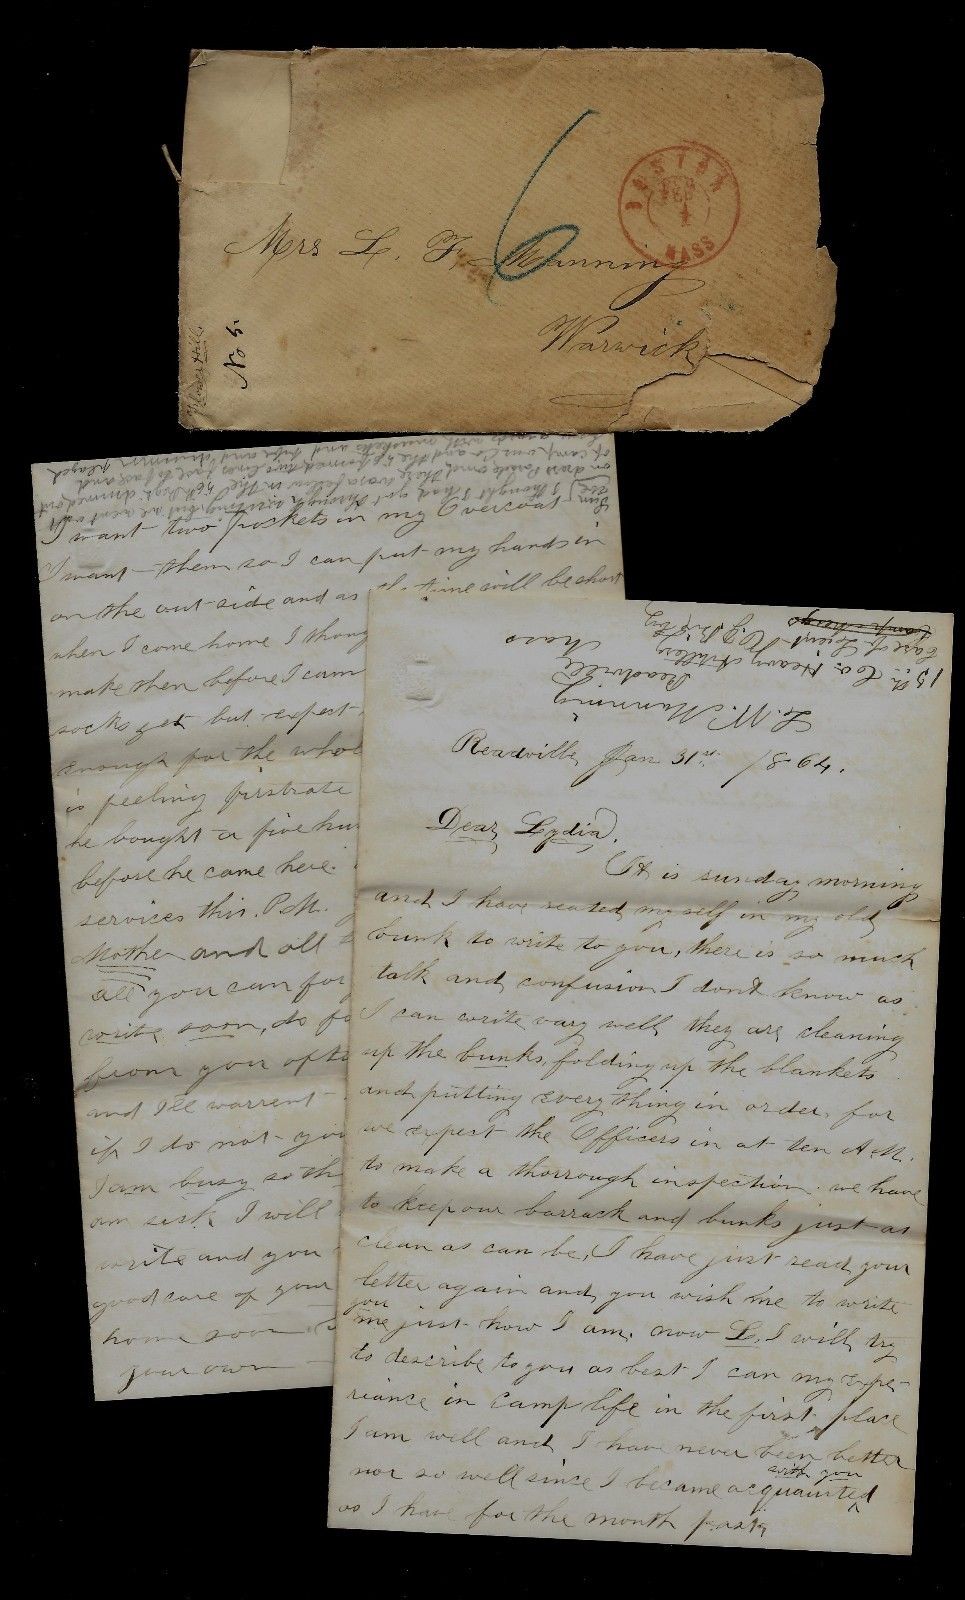 6
BOSTON
FEB
1
MASS
Mrs L. F. Manning
Warwick
No 5.
I want two pockets in my Overcoat
I want them so I can put my hands in
on the out side and as time will be short
when I come home I thoug
make them before I cam
socks yet but expect
enough for the whol
is feeling firstrate
he bought a five hun
before he came here.
services this. P.M.
Mother and all
all you can for
write soon, do
from you ofte
and Ill warrent
if I do not you
I am busy so th
am sick I will
write and you
good care of your
home soon
your own
15th Co. Heavy Artillery
Care of Lieut
L. W. Manning
Readville
Mass
Readville, Jan 31st /864.
Dear Lydia.
It is sunday morning
and I have seated my self in my old
bunk to write to you, there is so much
talk and confusion I dont know as
I can write vary well they are cleaning
up the bunks, folding up the blankets
and putting every thing in order, for
we expect the Officers in at ten A.M.
to make a thorrough inspection. we have
to keep our barrack and bunks just as
clean as can be, I have just read your
letter again and you wish me to write
you
me just how I am. now L. I will try
to describe to you as best I can my expe-
riance in Camp life in the first place
I am well and I have never been better
with you
nor so well since I became acquainted ^
as I have for the month past